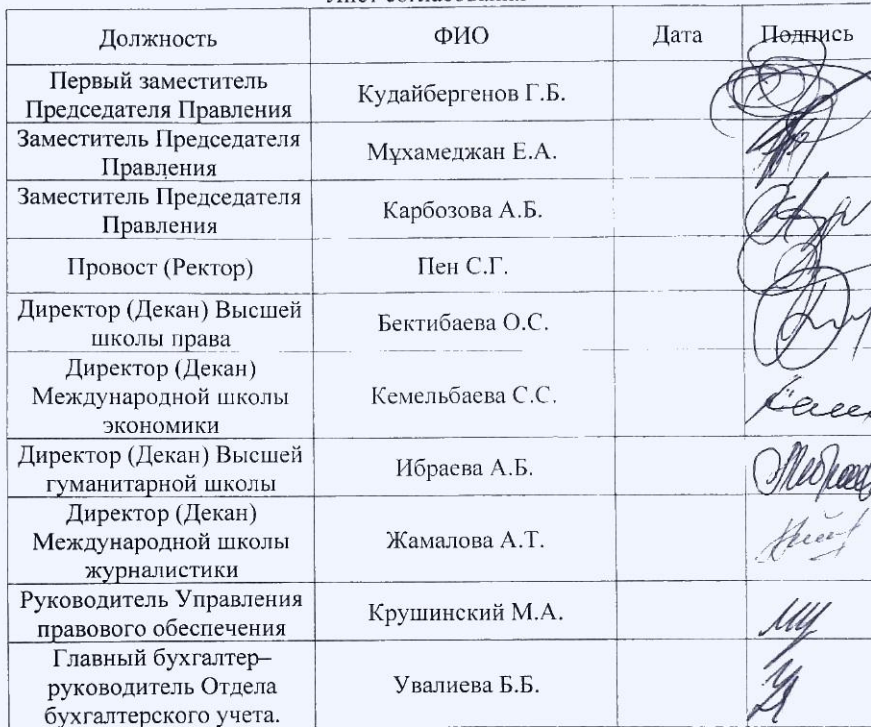 Должность ФИО Дата Подпись
Первый заместитель
Председателя Правления Кудайбергенов Г.Б.
Заместитель Председателя
Правления Мұхамеджан Е.А.
Заместитель Председателя
Правления Карбозова А.Б.
Провост (Ректор) Пен С.Г.
Директор (Декан) Высшей
школы права Бектибаева О.С.
Директор (Декан)
Международной школы
экономики Кемельбаева С.С.
Директор (Декан) Высшей
гуманитарной школы Ибраева А.Б.
Директор (Декан)
Международной школы
журналистики Жамалова А.Т.
Руководитель Управления
правового обеспечения Крушинский М.А.
Главный бухгалтер–
руководитель Отдела
бухгалтерского учета. Увалиева Б.Б.